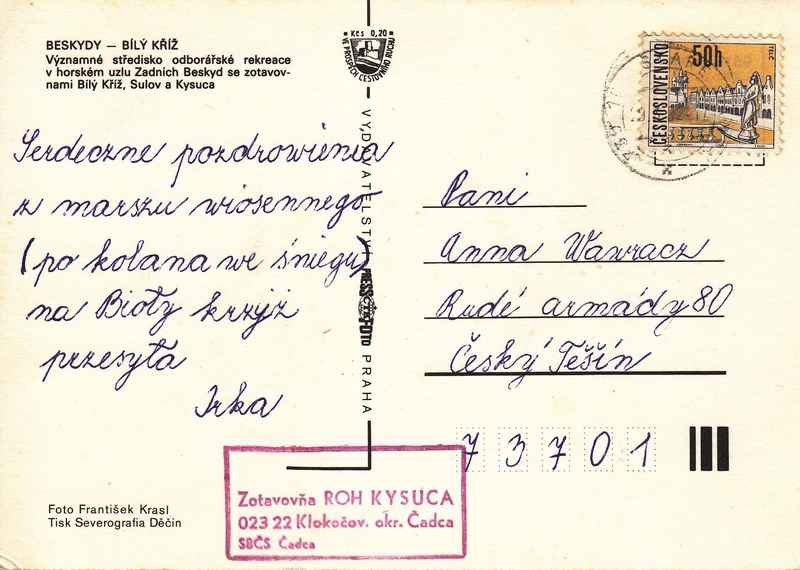 BESKYDY — BÍLÝ KŘÍŽ
Významné středisko odborářské rekreace
v horském uzlu Zadních Beskyd se zotavov-
nami Bílý Kříž, Sulov a Kysuca
Kčs 0,20
VE PROSPĚCH CESTOVNÍHO RUCHU
ČESKOSLOVENSKO
50h
TELČ
Serdeczne pozdrowienia
z marszu wiosennego
(po kolana we śniegu)
na Biały krzyż
przesyła
Irka
VYDAVATELSTVÍ PRESSFOTO PRAHA
Pani
Anna Wawracz
Rudé armády 80
Český Těšín
73701
Zotavovňa ROH KYSUCA
023 22 Klokočov, okr. Čadca
SBČS Čadca
Foto František Krasl
Tisk Severografia Děčín